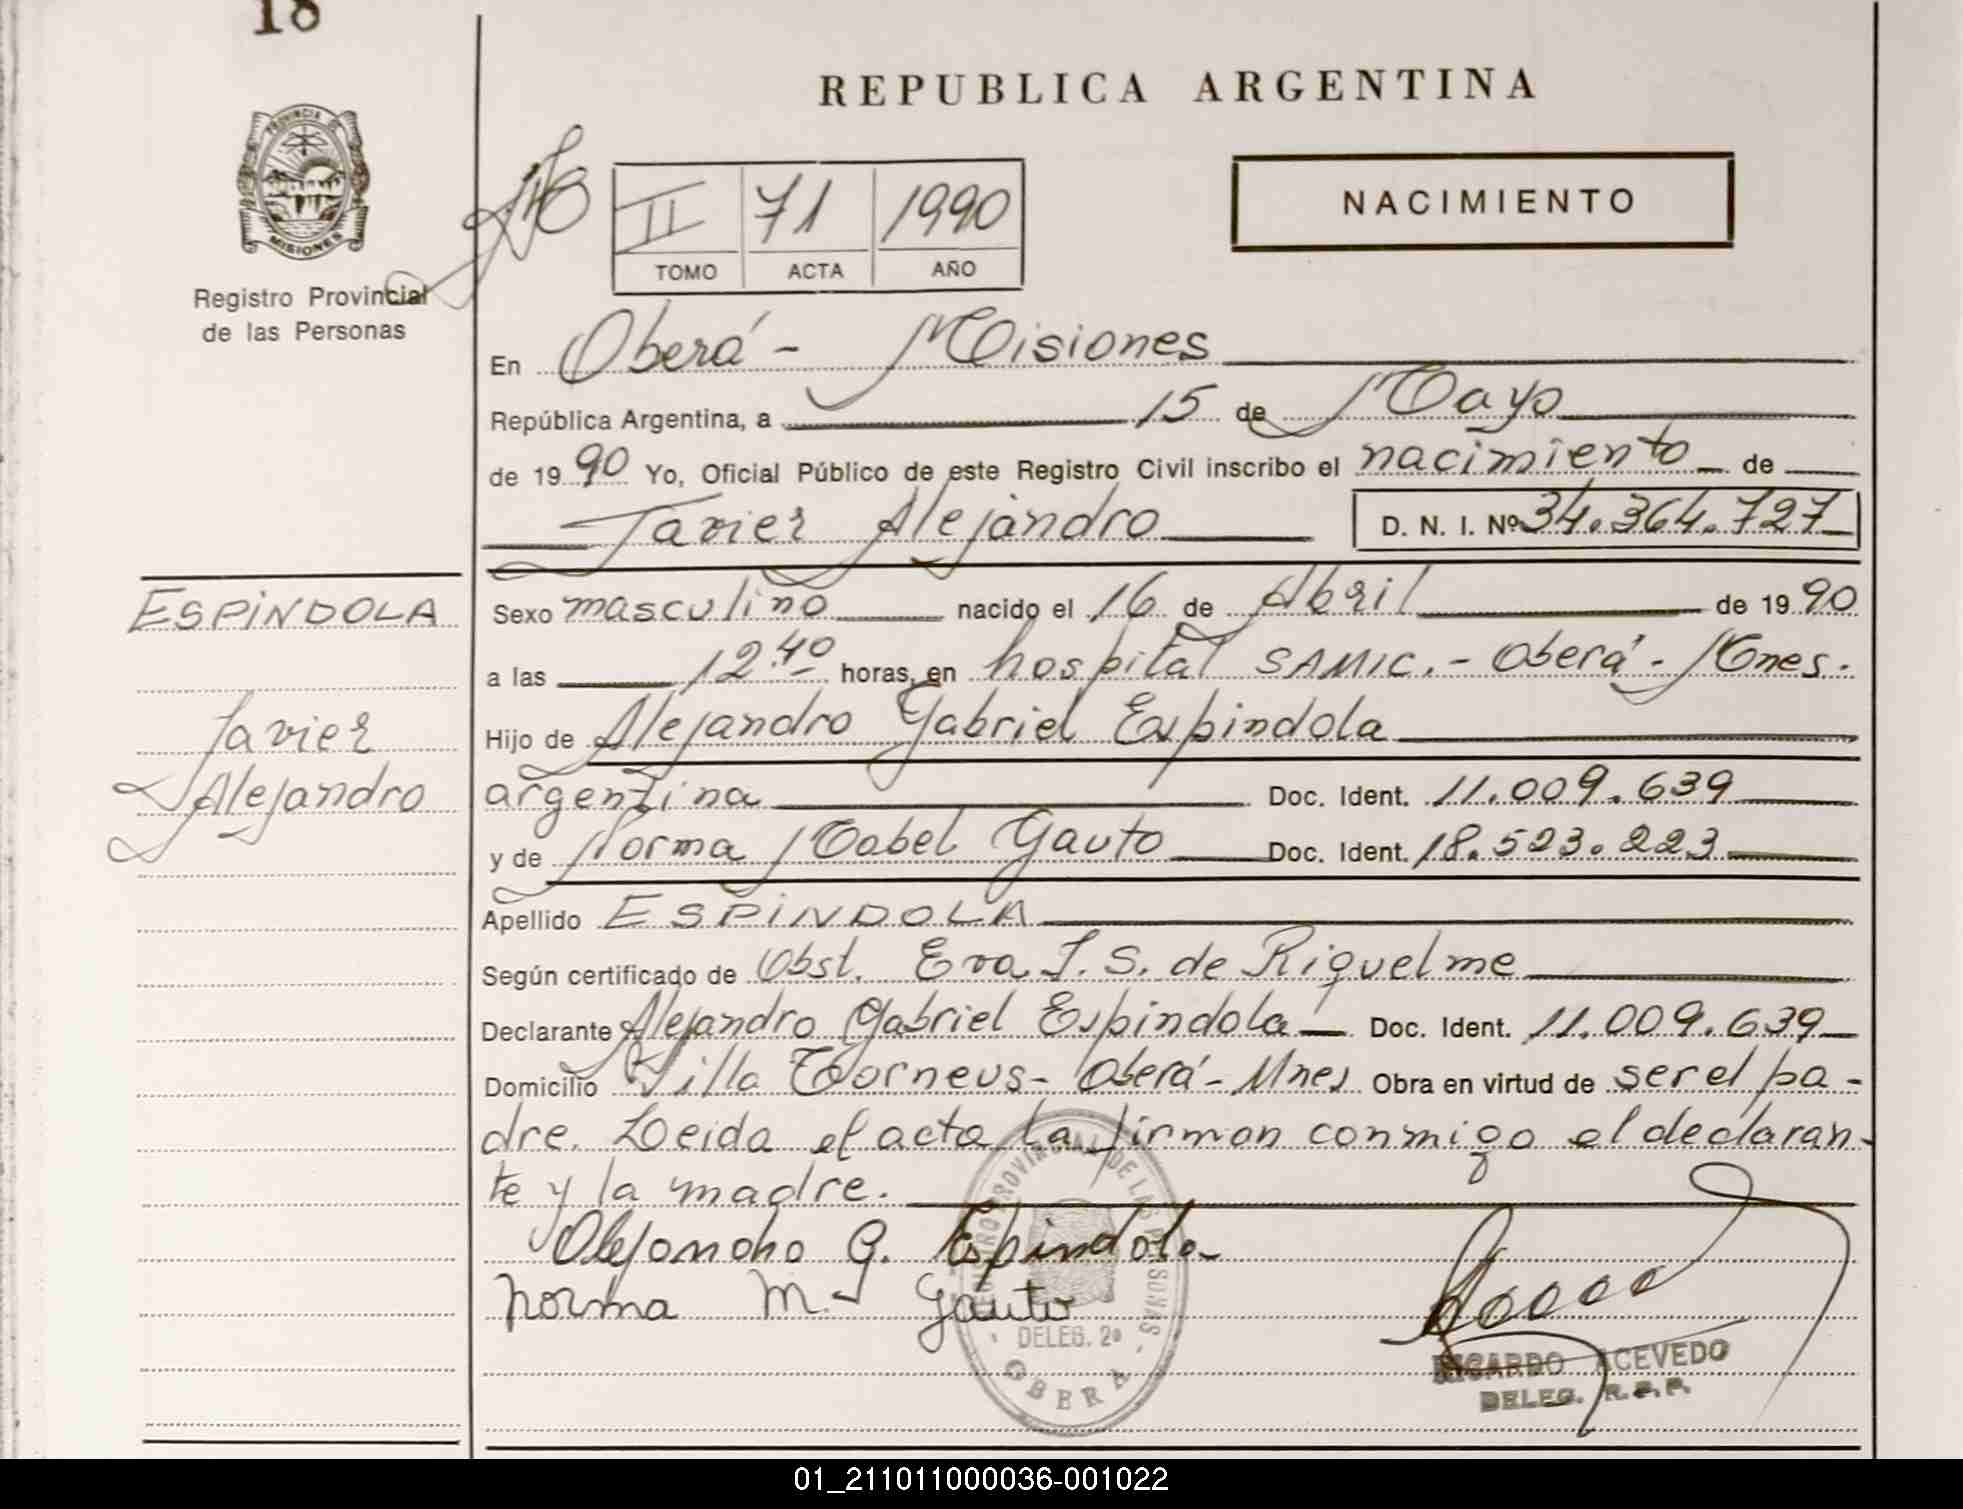 18
REPUBLICA ARGENTINA
PROVINCIA DE
MISIONES
Registro Provincial
de las Personas
II 71 1990
TOMO ACTA AÑO
NACIMIENTO
En Oberá - Misiones
República Argentina, a 15 de Mayo
de 1990 Yo, Oficial Público de este Registro Civil inscribo el nacimiento de
Javier Alejandro D. N. I. Nº 34.364.727
ESPINDOLA
Javier
Alejandro
Sexo masculino nacido el 16 de Abril de 1990
a las 12.40 horas, en hospital SAMIC.- Oberá - Mnes.
Hijo de Alejandro Gabriel Espindola
argentina Doc. Ident. 11.009.639
y de Norma Mabel Gauto Doc. Ident. 18.523.223
Apellido ESPINDOLA
Según certificado de Obst. Eva I. S. de Riquelme
Declarante Alejandro Gabriel Espindola Doc. Ident. 11.009.639
Domicilio Villa Torneus - Oberá - Mnes Obra en virtud de ser el pa-
dre. Leida el acta la firman conmigo el declaran-
te y la madre.
Alejandro G. Espindola
Norma M. Gauto
REGISTRO PROVINCIAL DE LAS PERSONAS
DELEG. 2ª
OBERA
RICARDO ACEVEDO
DELEG. R.P.P.
01_211011000036-001022